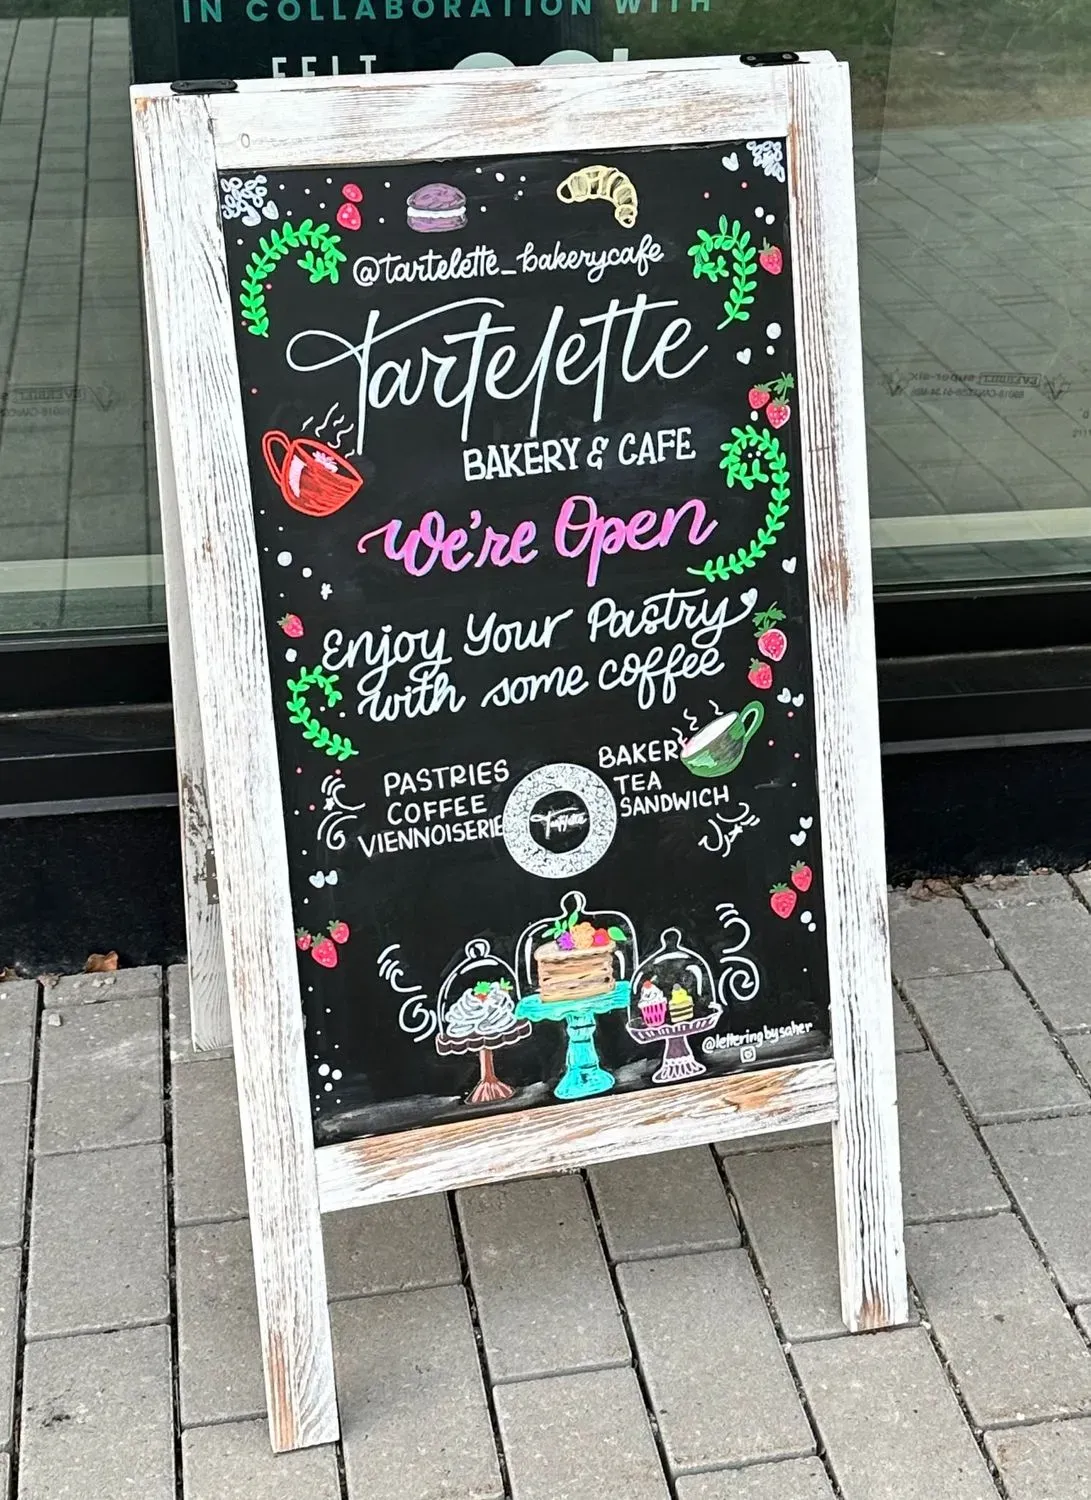 IN COLLABORATION WITH
FELT
@tartelette_bakerycafe
Tartelette
BAKERY & CAFE
We're Open
Enjoy Your Pastry
with some coffee
PASTRIES
COFFEE
VIENNOISERIE
BAKERY
TEA
SANDWICH
Tartelette
@letteringbysaher